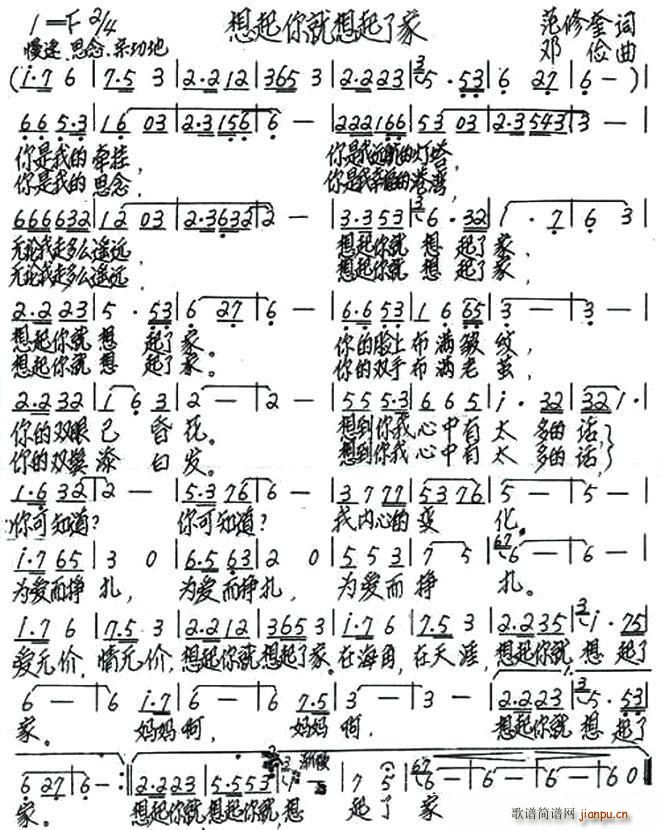 想起你就想起了家
1=F 2/4
范修奎 词
慢速、思念、亲切地
邓 俭 曲
(i·7 6 | 7·5 3 | 2·2 1 2 | 3 6 5 3 | 2·2 2 3 | 5·5 3 | 6 2 7 | 6 — ) |
6 6 5·3 | 1 6 0 3 | 2·3 1 5 6 | 6 — | 2 2 2 1 6 6 | 5 3 0 3 | 2·3 5 4 3 | 3 — |
你是我的牵挂, 你是我远航的灯塔,
你是我的思念, 你是我幸福的港湾,
6 6 6 6 3 2 | 1 2 0 3 | 2·3 6 3 2 | 2 — | 3·3 5 3 | 6·3 2 | 1 · 7 | 6 3 |
无论我走多么遥远, 想起你就 想 起了家,
无论我走多么遥远, 想起你就 想 起了家,
2·2 2 3 | 5 · 5 3 | 6 2 7 | 6 — | 6·6 5 3 | 1 6 6 5 | 3 — | 3 — |
想起你就 想 起了家。 你的脸上布满皱纹,
想起你就 想 起了家。 你的双手布满老茧,
2·2 3 2 | 1 6 3 | 2 — | 2 — | 5 5 5·3 | 6 6 5 | i · 3 2 | 3 2 1 · |
你的双眼已昏花。 想到你我心中有太多的话,
你的双鬓添白发。 想到你我心中有太多的话,
1·6 3 2 | 2 — | 5·3 7 6 | 6 — | 3 7 7 7 | 5 3 7 6 | 5 — | 5 — |
你可知道? 你可知道? 我内心的变 化。
i·7 6 5 | 3 0 | 6·5 6 3 | 2 0 | 5 5 3 | 7 5 | 6 — | 6 — |
为爱而挣扎, 为爱而挣扎, 为爱而挣 扎。
i·7 6 | 7·5 3 | 2·2 1 2 | 3 6 5 3 | i·7 6 | 7·5 3 | 2·2 3 5 | i · 7 5 |
爱无价,情无价,想起你就想起了家。在海角,在天涯,想起你就 想 起了
6 — | 6 i·7 | 6 — | 6 7·5 | 3 — | 3 — | 2·2 2 3 | 5 · 5 3 |
家。 妈妈啊, 妈妈啊, 想起你就 想 起了
6 2 7 | 6 — :‖ 2·2 2 3 | 5·5 5 3 | i — | 7 5 | 6 — | 6 — | 6 — | 6 0 ‖
家。 想起你就想起你就,想 起了 家
歌谱简谱网
jianpu.cn